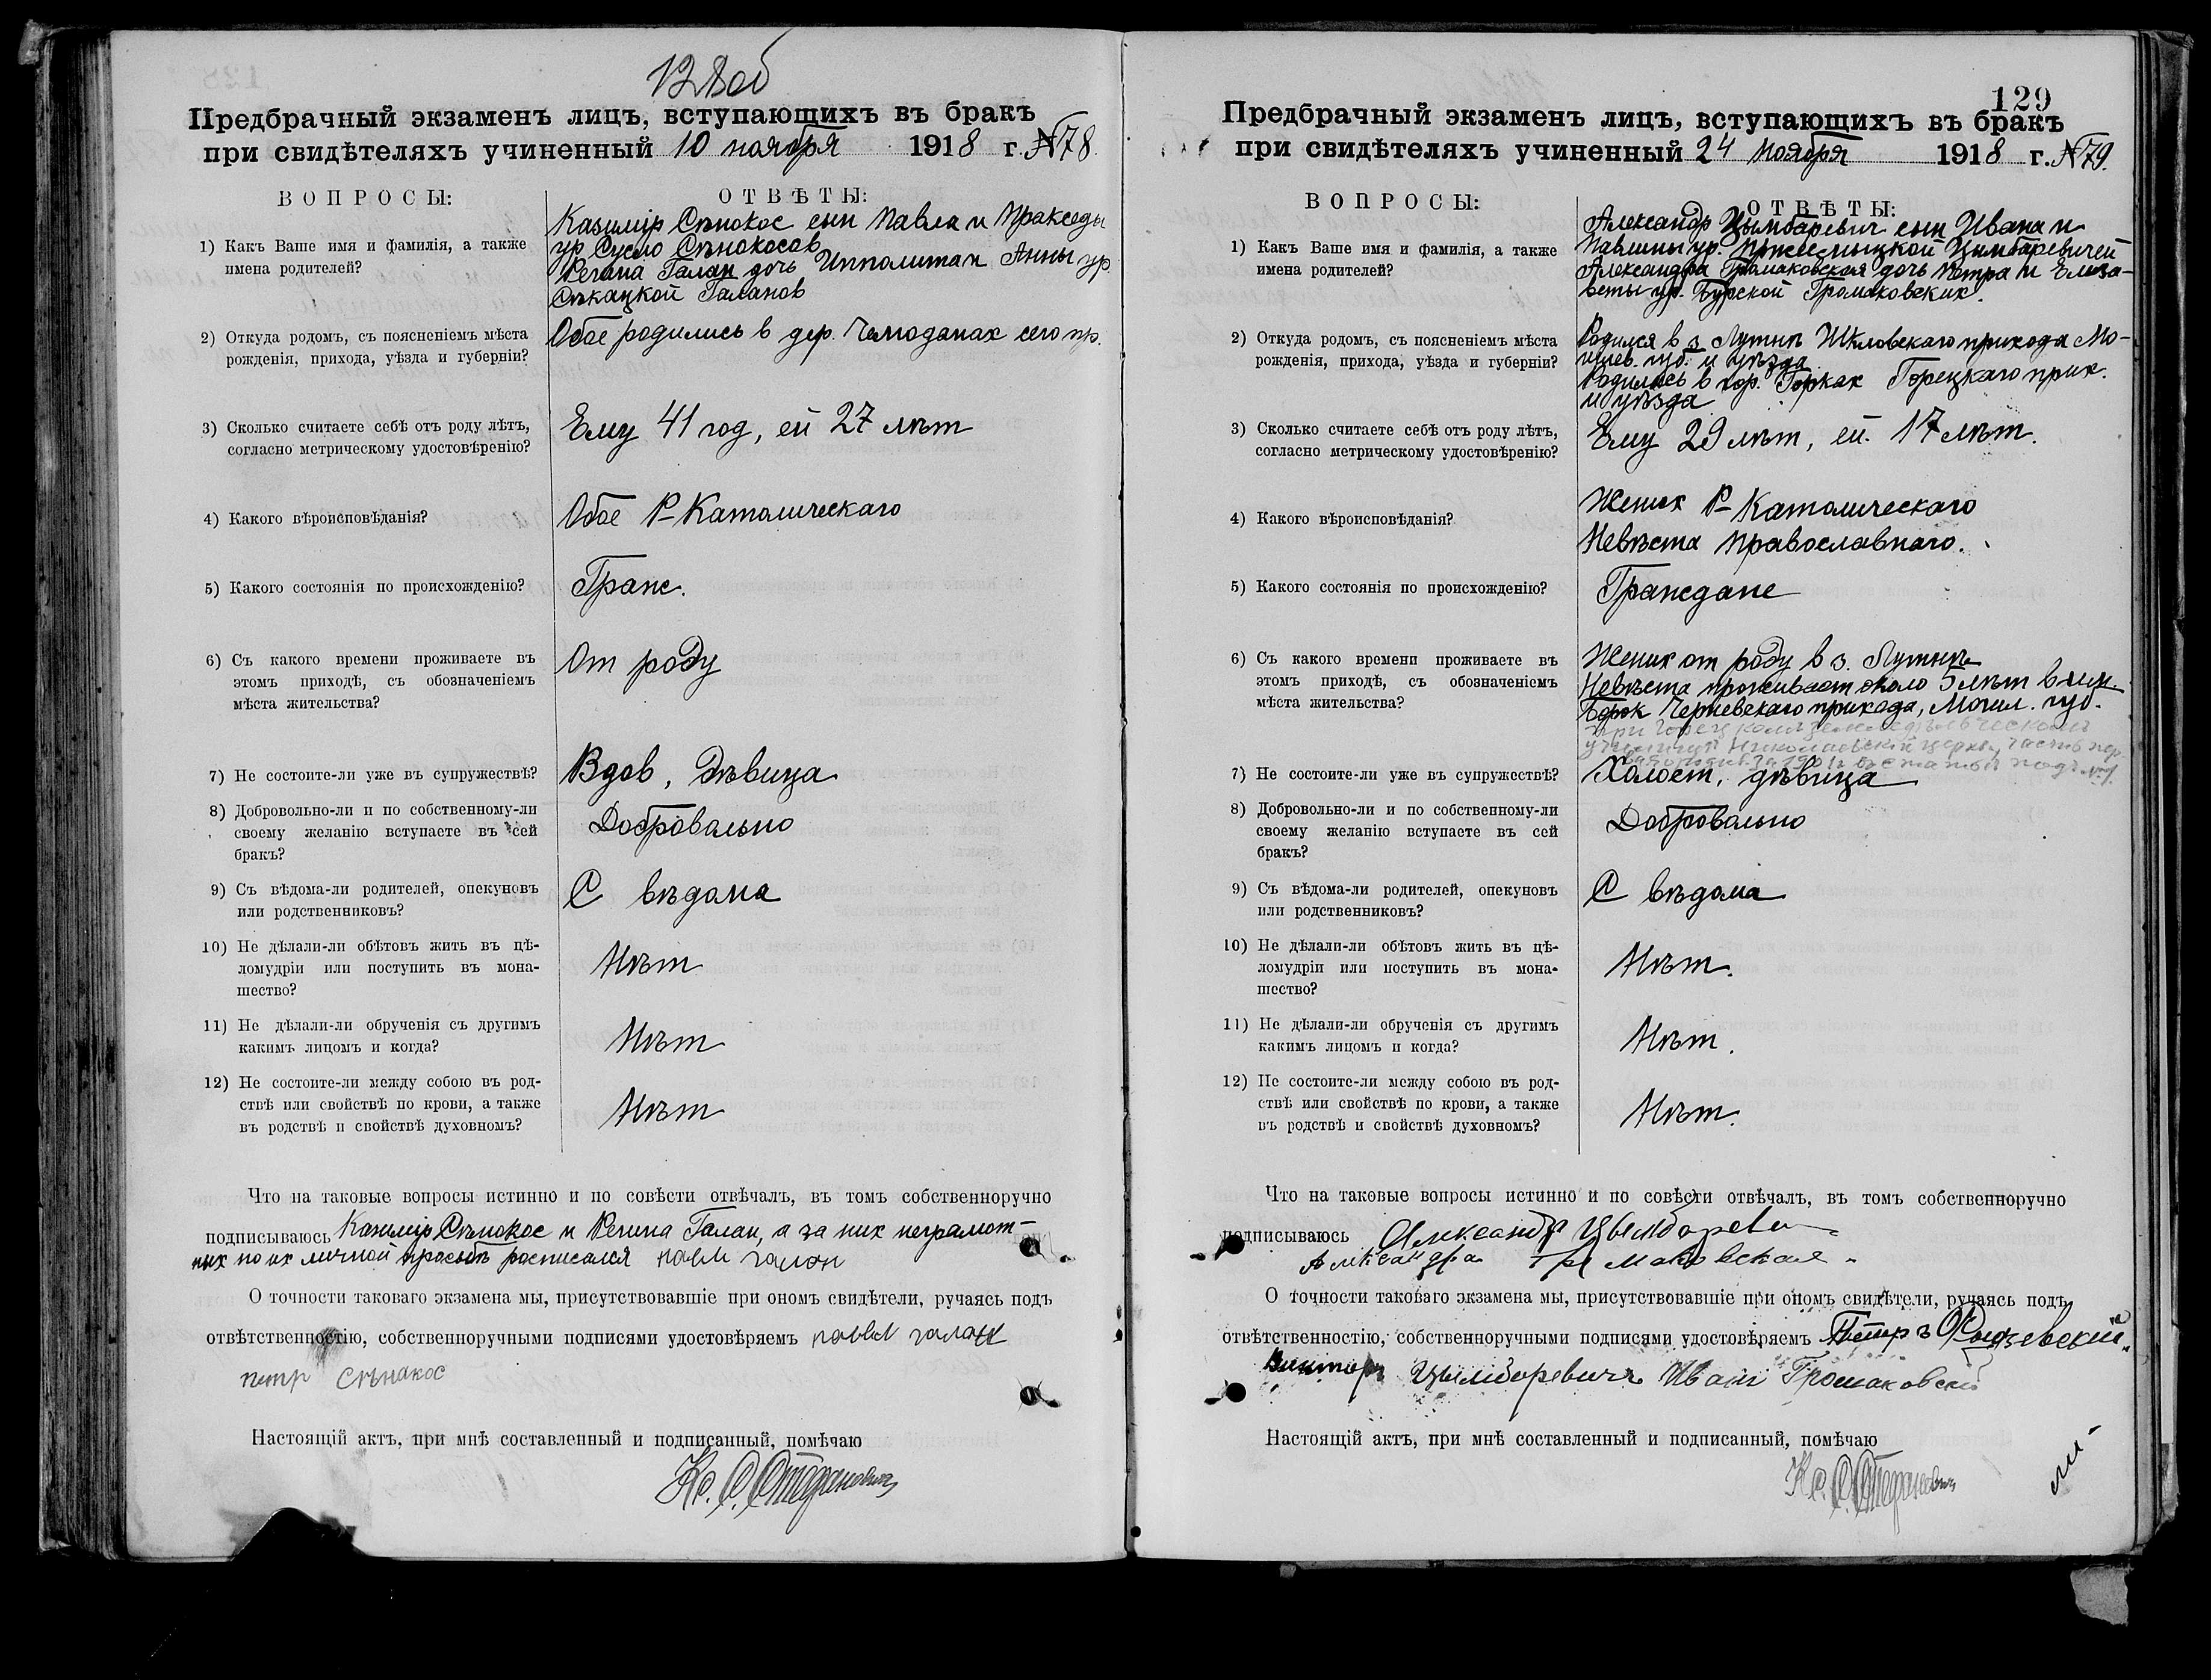 128об
Предбрачный экзаменъ лицъ, вступающихъ въ бракъ
при свидѣтеляхъ учиненный 10 ноября 1918 г. №78.
ВОПРОСЫ:
ОТВѢТЫ:
1) Какъ Ваше имя и фамилія, а также
имена родителей?
Казимір Сѣнокос сын Павла и Пракседы
ур. Сусло Сѣнокосов
Регина Галан дочь Ипполита и Анны ур.
Сѣкацкой Галанов
2) Откуда родомъ, съ поясненіемъ мѣста
рожденія, прихода, уѣзда и губерніи?
Обое родились в дер. Чемоданах сего пр.
3) Сколько считаете себѣ отъ роду лѣтъ,
согласно метрическому удостовѣренію?
Ему 41 год, ей 27 лѣт
4) Какого вѣроисповѣданія?
Обое Р-Католическаго
5) Какого состоянія по происхожденію?
Граж.
6) Съ какого времени проживаете въ
этомъ приходѣ, съ обозначеніемъ
мѣста жительства?
От роду
7) Не состоите-ли уже въ супружествѣ?
Вдов, дѣвица
8) Добровольно-ли и по собственному-ли
своему желанію вступаете въ сей
бракъ?
Добровольно
9) Съ вѣдома-ли родителей, опекуновъ
или родственниковъ?
С вѣдома
10) Не дѣлали-ли обѣтовъ жить въ цѣ-
ломудріи или поступить въ мона-
шество?
Нѣт
11) Не дѣлали-ли обрученія съ другимъ
какимъ лицомъ и когда?
Нѣт
12) Не состоите-ли между собою въ род-
ствѣ или свойствѣ по крови, а также
въ родствѣ и свойствѣ духовномъ?
Нѣт
Что на таковые вопросы истинно и по совѣсти отвѣчалъ, въ томъ собственноручно
подписываюсь Казимір Сѣнокос и Регина Галан, а за них неграмот-
ных по их личной просьбѣ росписался павел галан
О точности таковаго экзамена мы, присутствовавшіе при ономъ свидѣтели, ручаясь подъ
отвѣтственностію, собственноручными подписями удостовѣряемъ павел галан
петр Сѣнакос
Настоящій актъ, при мнѣ составленный и подписанный, помѣчаю
Кс. С. Стефанович
129
Предбрачный экзаменъ лицъ, вступающихъ въ бракъ
при свидѣтеляхъ учиненный 24 ноября 1918 г. №79.
ВОПРОСЫ:
ОТВѢТЫ:
1) Какъ Ваше имя и фамилія, а также
имена родителей?
Александр Цымбаревич сын Ивана и
Павлины ур. Цимбаревичей
Александра Громаковская дочь Петра и Елиза-
веты ур. Бурской Громаковских.
2) Откуда родомъ, съ поясненіемъ мѣста
рожденія, прихода, уѣзда и губерніи?
Родился в з. Лутнѣ Шкловскаго прихода Мо-
гилев. губ. и уѣзда.
Родилась в гор. Горках Горецкаго прих.
и уѣзда
3) Сколько считаете себѣ отъ роду лѣтъ,
согласно метрическому удостовѣренію?
Ему 29 лѣт, ей 17 лѣт.
4) Какого вѣроисповѣданія?
Жених Р-Католическаго
Невѣста Православнаго.
5) Какого состоянія по происхожденію?
Граждане
6) Съ какого времени проживаете въ
этомъ приходѣ, съ обозначеніемъ
мѣста жительства?
Жених от роду в з. Лутнѣ
Невѣста проживает около 5 лѣт в им.
Борок Черневскаго прихода, Могил. губ.
при Горецком земледѣльческом
училищѣ Николаевской церкви, часть пер.
7) Не состоите-ли уже въ супружествѣ?
Холост, дѣвица
8) Добровольно-ли и по собственному-ли
своему желанію вступаете въ сей
бракъ?
Добровольно
9) Съ вѣдома-ли родителей, опекуновъ
или родственниковъ?
С вѣдома
10) Не дѣлали-ли обѣтовъ жить въ цѣ-
ломудріи или поступить въ мона-
шество?
Нѣт.
11) Не дѣлали-ли обрученія съ другимъ
какимъ лицомъ и когда?
Нѣт.
12) Не состоите-ли между собою въ род-
ствѣ или свойствѣ по крови, а также
въ родствѣ и свойствѣ духовномъ?
Нѣт.
Что на таковые вопросы истинно и по совѣсти отвѣчалъ, въ томъ собственноручно
подписываюсь Александр
Александра Громаковская
О точности таковаго экзамена мы, присутствовавшіе при ономъ свидѣтели, ручаясь подъ
отвѣтственностію, собственноручными подписями удостовѣряемъ Петръ
Викторъ Цымборевичъ Иван Громаковский
Настоящій актъ, при мнѣ составленный и подписанный, помѣчаю
Кс. С. Стефанович